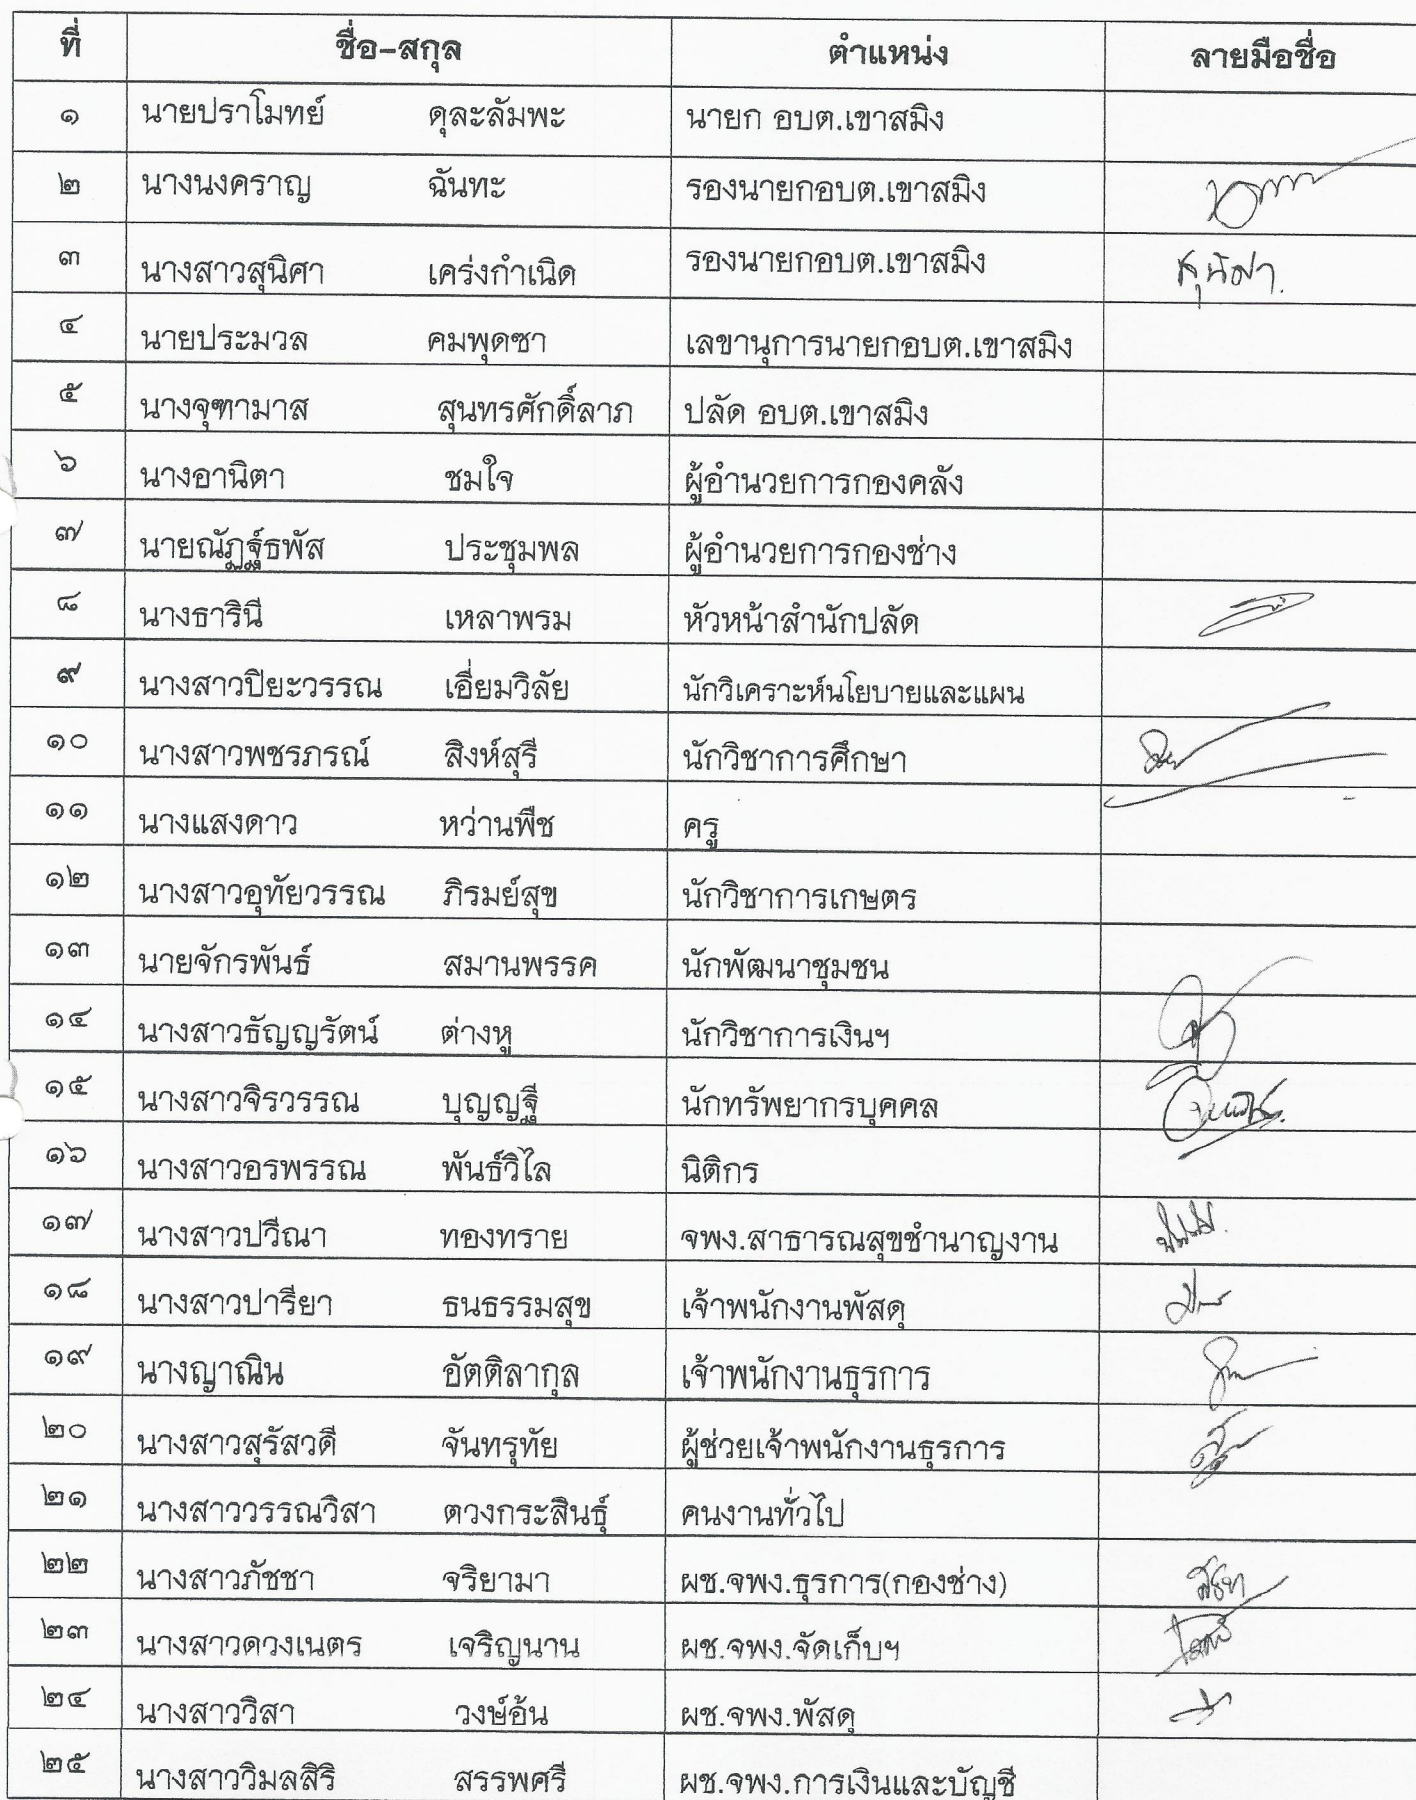 ที่ ชื่อ-สกุล ตำแหน่ง ลายมือชื่อ
๑ นายปราโมทย์ ดุละลัมพะ นายก อบต.เขาสมิง
๒ นางนงคราญ ฉันทะ รองนายกอบต.เขาสมิง
๓ นางสาวสุนิศา เคร่งกำเนิด รองนายกอบต.เขาสมิง สุนิศา
๔ นายประมวล คมพุดซา เลขานุการนายกอบต.เขาสมิง
๕ นางจุฑามาส สุนทรศักดิ์ลาภ ปลัด อบต.เขาสมิง
๖ นางอานิตา ชมใจ ผู้อำนวยการกองคลัง
๗ นายณัฏฐ์ธพัส ประชุมพล ผู้อำนวยการกองช่าง
๘ นางธารินี เหลาพรม หัวหน้าสำนักปลัด
๙ นางสาวปิยะวรรณ เอี่ยมวิลัย นักวิเคราะห์นโยบายและแผน
๑๐ นางสาวพชรภรณ์ สิงห์สุรี นักวิชาการศึกษา
๑๑ นางแสงดาว หว่านพืช ครู
๑๒ นางสาวอุทัยวรรณ ภิรมย์สุข นักวิชาการเกษตร
๑๓ นายจักรพันธ์ สมานพรรค นักพัฒนาชุมชน
๑๔ นางสาวธัญญรัตน์ ต่างหู นักวิชาการเงินฯ
๑๕ นางสาวจิรวรรณ บุญญฐี นักทรัพยากรบุคคล
๑๖ นางสาวอรพรรณ พันธ์วิไล นิติกร
๑๗ นางสาวปวีณา ทองทราย จพง.สาธารณสุขชำนาญงาน
๑๘ นางสาวปารียา ธนธรรมสุข เจ้าพนักงานพัสดุ
๑๙ นางญาณิน อัตติลากุล เจ้าพนักงานธุรการ
๒๐ นางสาวสุรัสวดี จันทรุทัย ผู้ช่วยเจ้าพนักงานธุรการ
๒๑ นางสาววรรณวิสา ตวงกระสินธุ์ คนงานทั่วไป
๒๒ นางสาวภัชชา จริยามา ผช.จพง.ธุรการ(กองช่าง)
๒๓ นางสาวดวงเนตร เจริญนาน ผช.จพง.จัดเก็บฯ
๒๔ นางสาววิสา วงษ์อ้น ผช.จพง.พัสดุ
๒๕ นางสาววิมลสิริ สรรพศรี ผช.จพง.การเงินและบัญชี